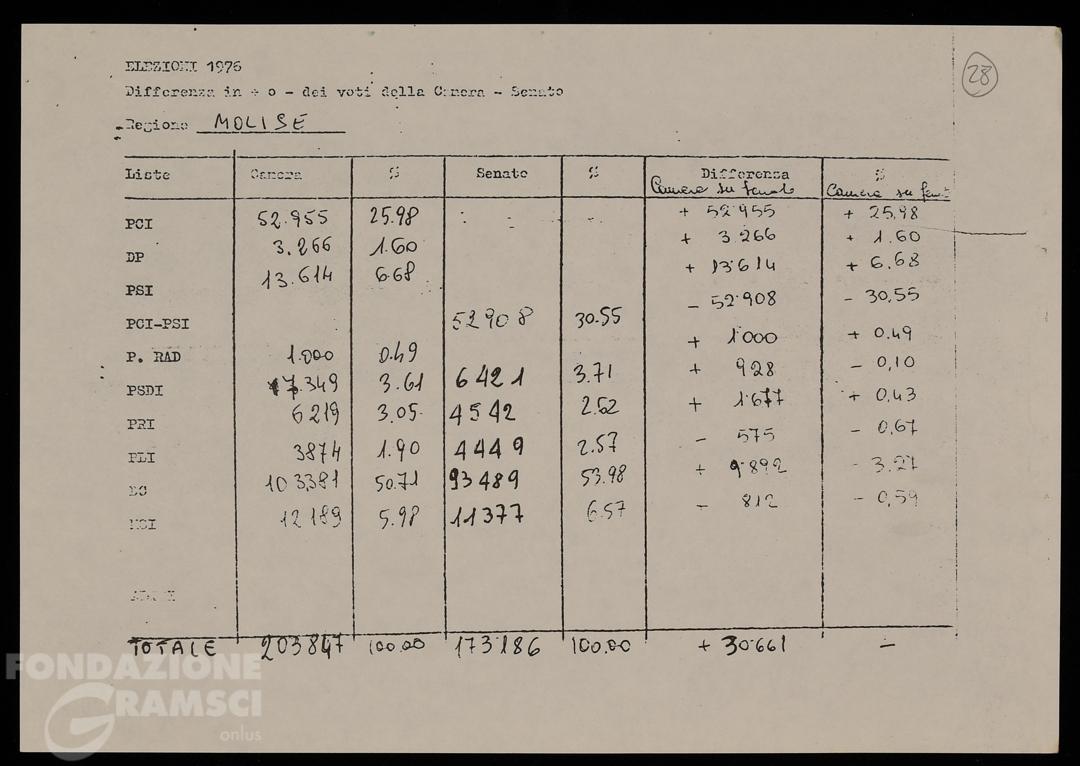 ELEZIONI 1976
28
Differenza in + o - dei voti della Camera - Senato
Regione MOLISE
Liste Camera % Senato % Differenza Camera su Senato % Camera su Senat
PCI 52.955 25.98 - - + 52955 + 25,98
DP 3.266 1.60 + 3.266 + 1.60
PSI 13.614 6.68 + 13.614 + 6.68
PCI-PSI 52908 30.55 - 52.908 - 30,55
P. RAD 1.000 0.49 + 1.000 + 0.49
PSDI 7.349 3.61 6421 3.71 + 928 - 0,10
PRI 6219 3.05 4542 2.62 + 1.677 + 0,43
PLI 3874 1.90 4449 2.57 - 575 - 0,67
DC 103381 50.71 93489 53.98 + 9.892 - 3.27
MSI 12189 5.98 11377 6.57 - 812 - 0,59
TOTALE 203847 100.00 173.186 100.00 + 30.661 -
FONDAZIONE
GRAMSCI
onlus